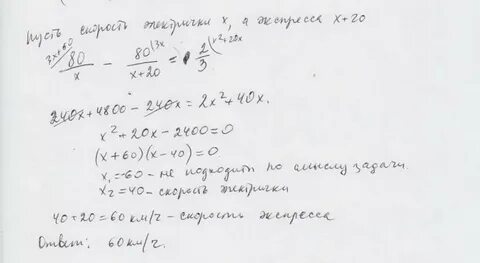 Пусть скорость электрички x, а экспресса x+20
3x+60/ 80/x - 80/(x+20) (3x = 2/3 (x²+20x
240x+4800-240x=2x²+40x.
x²+20x-2400=0
(x+60)(x-40)=0
x₁=-60 - не подходит по смыслу задачи.
x₂=40 - скорость электрички
40+20=60 км/ч - скорость экспресса
Ответ: 60 км/ч.